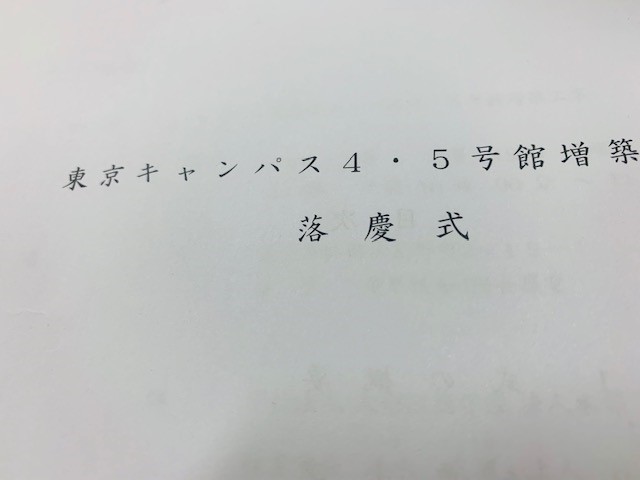 東京キャンパス４・５号館増築
落慶式